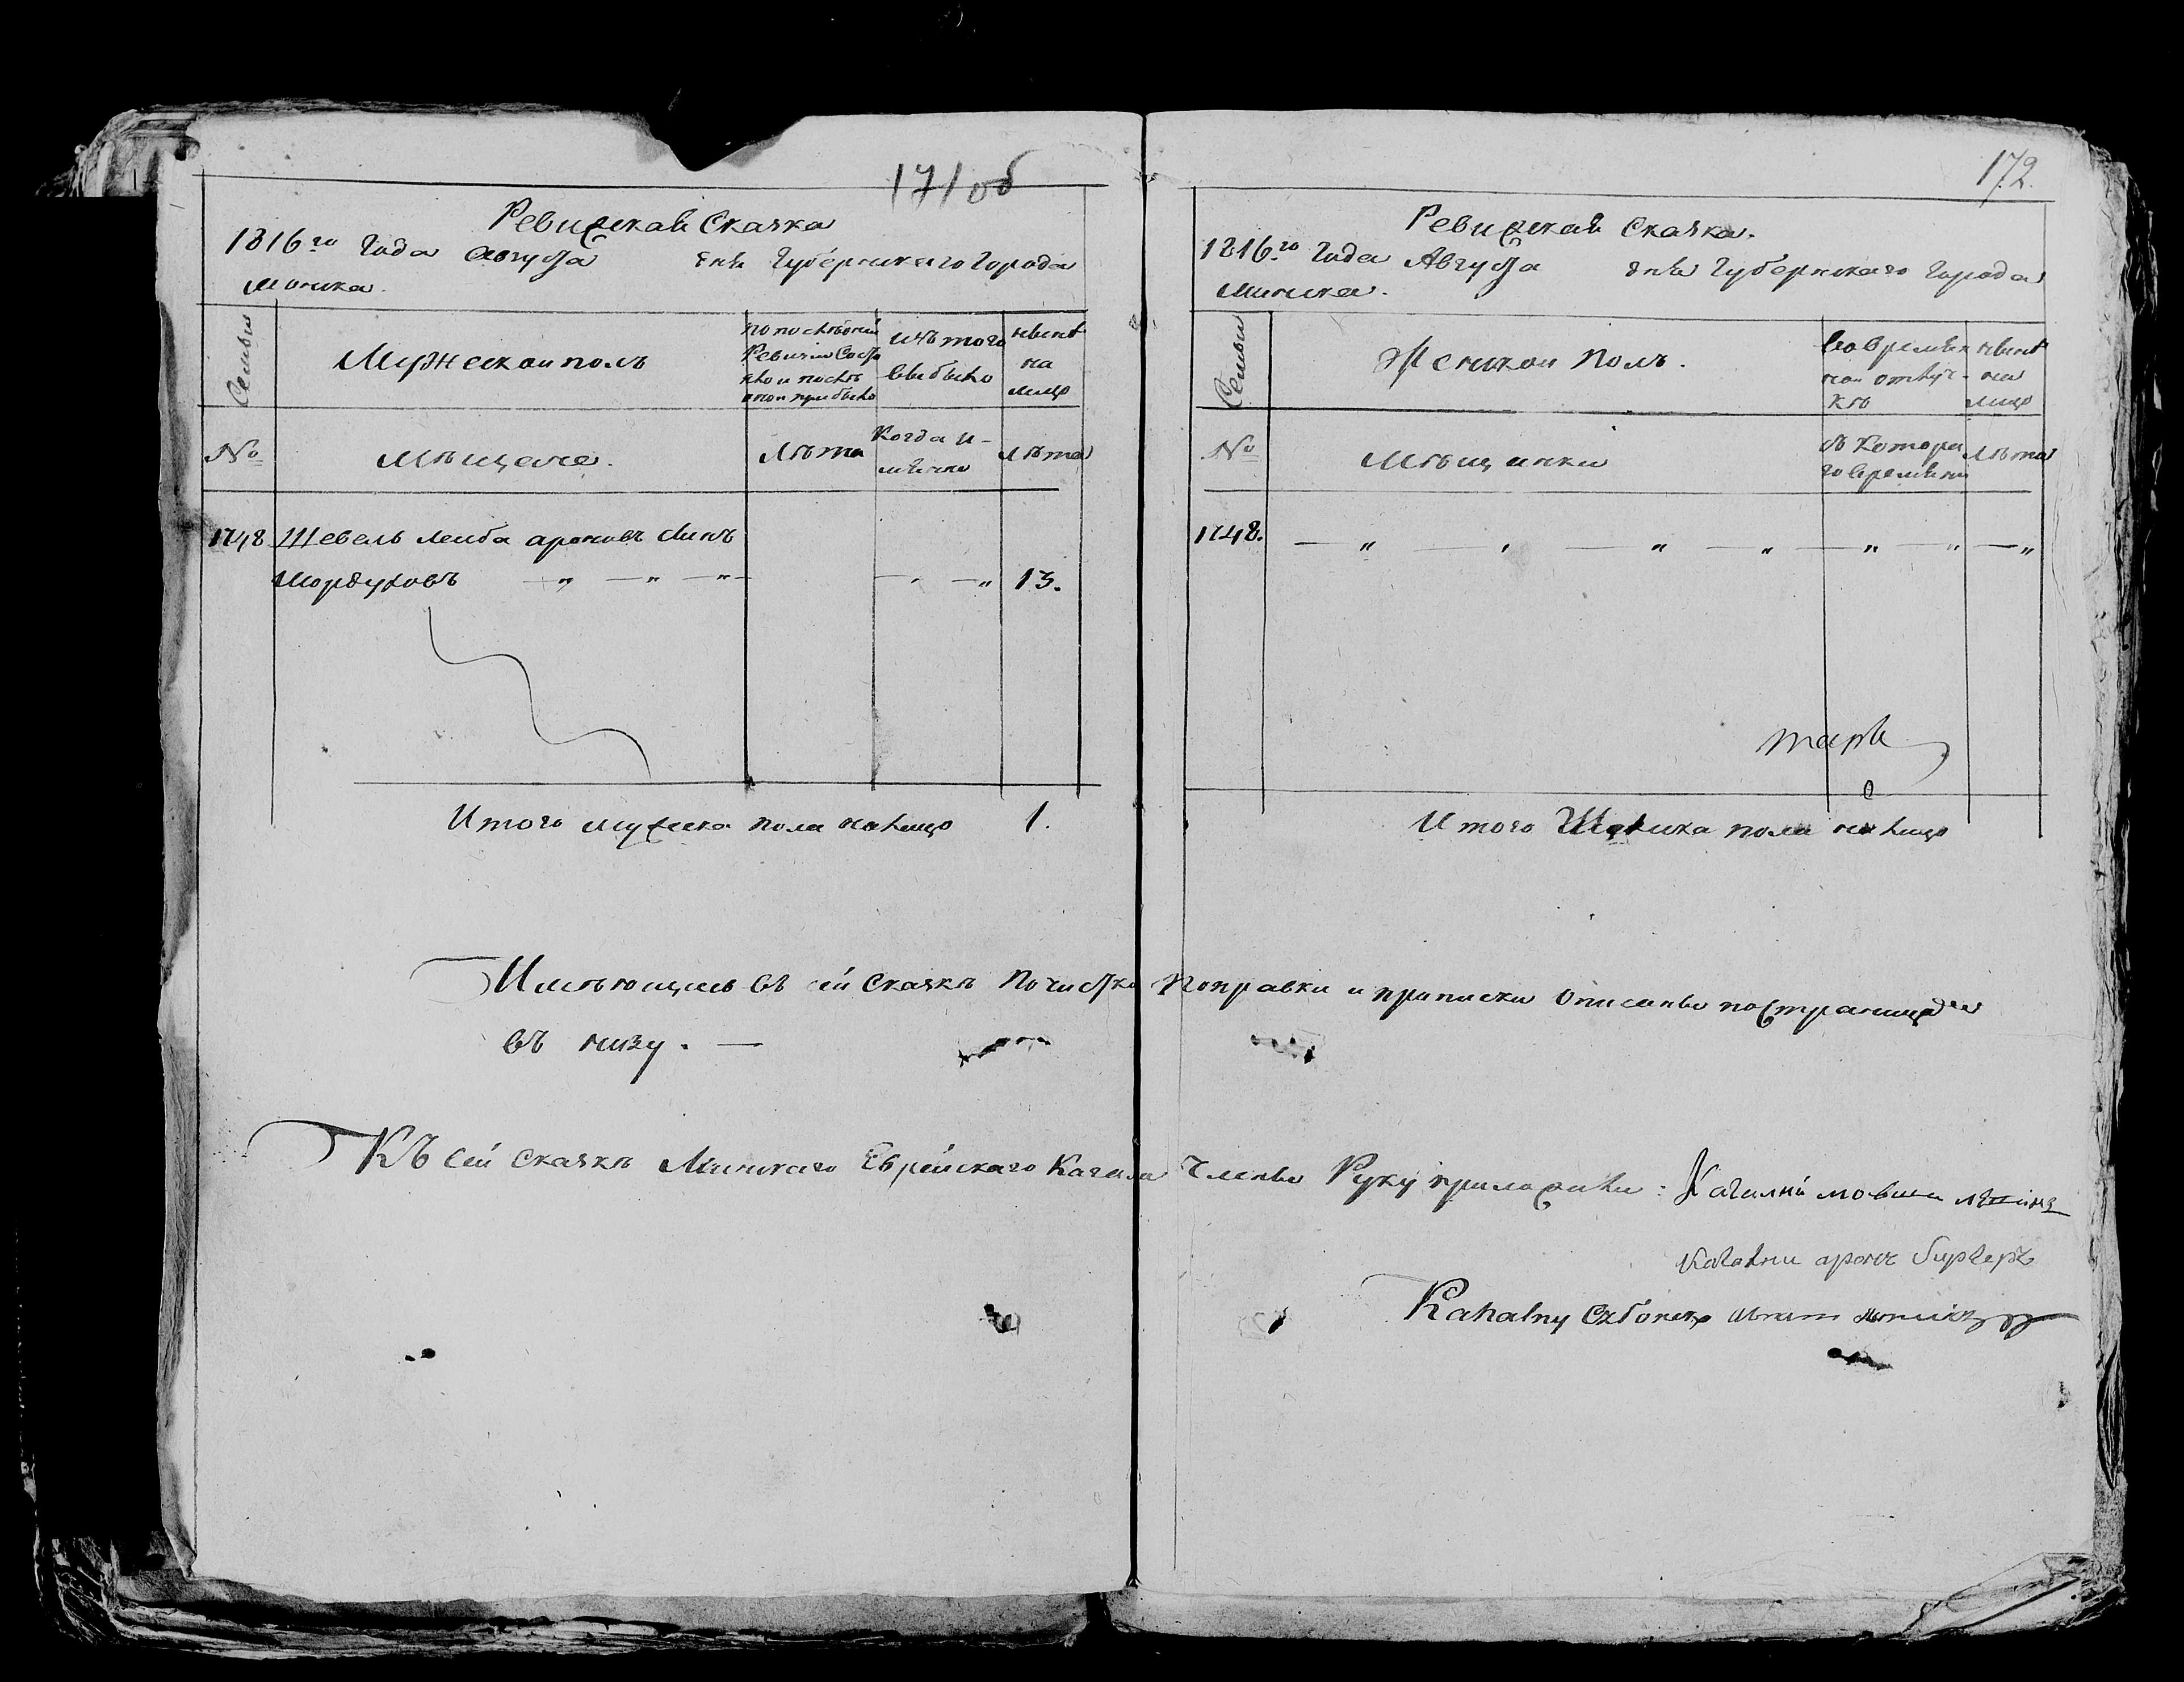 171 об
Ревижская Скаска
1816го Года августа дня Губернскаго Города
Минска.
Семьи
Мужеской полъ
по последней
Ревизии состо
яло и после
оной прибыло
Изъ того
выбыло
ныне
на
лицо
№
Мещане.
Лета
Когда и-
мянно
Лета
1748 Шевель Лейба ароновъ сынъ
Мордуховъ 13.
Итого мужеска пола налицо 1.
172.
Ревижская Скаска.
1816го Года Августа дня Губернскаго Города
Минска.
Семьи
Женской Полъ.
Во времян
ной отлуч-
ке
ныне
на
лицо
№
Мещанки
съ Котора
го времяни
Лета
1748.
Итого Женска пола налицо
Имеющиеся въ сей Скаске Почистки Поправки и приписки Описаны по Страницам
въ низу. —
Къ сей Скаске Минскаго Еврейскаго Кагала Члены Руку приложили: Кагалны мовша
Кагалны аронъ
Kahalny